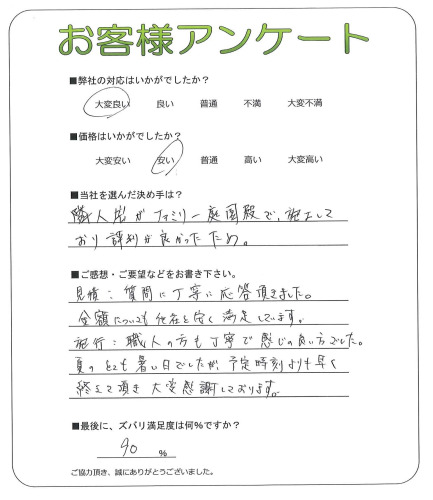 お客様アンケート
■弊社の対応はいかがでしたか？
大変良い 良い 普通 不満 大変不満
■価格はいかがでしたか？
大変安い 安い 普通 高い 大変高い
■当社を選んだ決め手は？
職人岩がファミリー庭園殿で、施工して
おり評判が良かったため。
■ご感想・ご要望などをお書き下さい。
見積：質問に丁寧に応答頂きました。
金額についても他社より安く満足しています。
施行：職人の方も丁寧で感じの良い方でした。
夏のとても暑い日でしたが、予定時刻よりも早く
終えて頂き大変感謝しております。
■最後に、ズバリ満足度は何％ですか？
90 ％
ご協力頂き、誠にありがとうございました。